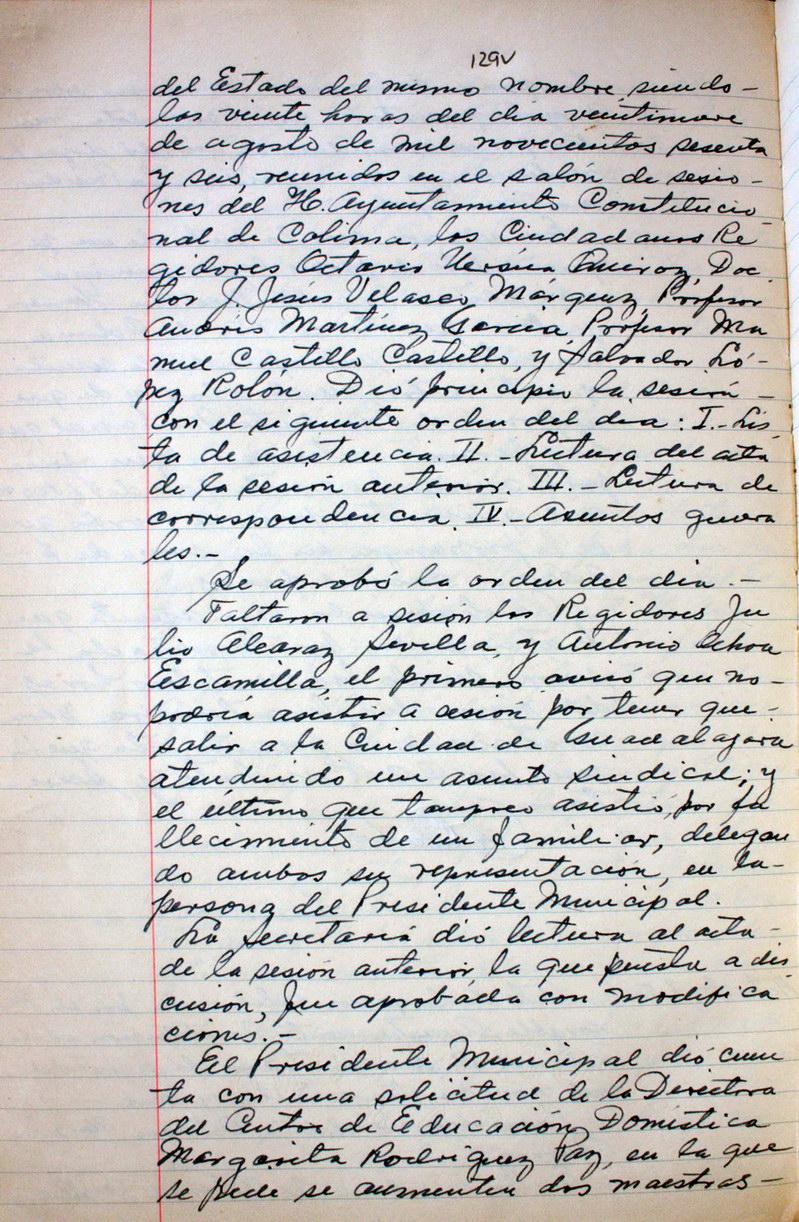 129V
del Estado del mismo nombre, siendo-
las veinte horas del dia veintinueve
de agosto de mil novecientos sesenta
y seis, reunidos en el salón de sesio-
nes del H. Ayuntamiento Constitucio
nal de Colima, los Ciudadanos Re
gidores Octavio Ursúa Quiroz, Doc
tor J. Jesús Velasco Márquez, Profesor
Andrés Martínez García Profesor Ma
nuel Castillo Castillo, y Salvador Ló-
pez Rolón. Dió principio la sesión-
con el siguiente orden del dia: I.- Lis
ta de asistencia. II.- Lectura del acta
de la sesión anterior. III.- Lectura de
correspondencia. IV.- Asuntos genera
les.-
Se aprobó la orden del dia.-
Faltaron a sesión los Regidores Ju
lio Alcaraz Sevilla, y Antonio Ochoa
Escamilla, el primero avisó que no-
podría asistir a sesión por tener que-
salir a la Ciudad de Guadalajara
atendiendo un asunto sindical; y
el último que tampoco asistió, por fa
llecimiento de un familiar, delegan
do ambos su representación, en la-
persona del Presidente Municipal.
La Secretaría dió lectura al acta-
de la sesión anterior la que puesta a dis
cusión, fue aprobada con modifica
ciones.-
El Presidente Municipal dió cuen
ta con una solicitud de la Directora
del Centro de Educación Doméstica
Margarita Rodríguez Paz, en la que
se pide se aumenten dos maestras-